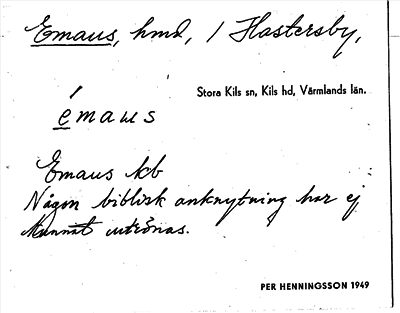 Emaus, hmd, / Hastersby,
Stora Kils sn, Kils hd, Värmlands län.
émaus
Emaus kb
Någon biblisk anknytning har ej
kunnat utrönas.
PER HENNINGSSON 1949